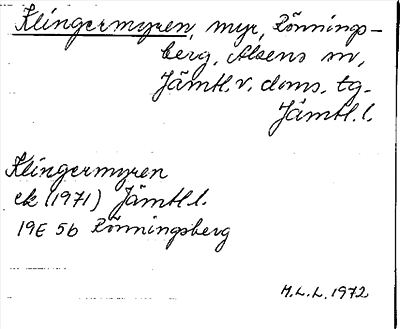 Klingermyren, myr, Rönnings-
berg, Alsens sn,
Jämtl. v. doms. tg.
Jämtl. l.
Klingermyren
ek (1971) Jämtl l.
19E 5b Rönningsberg
M.L.L. 1972